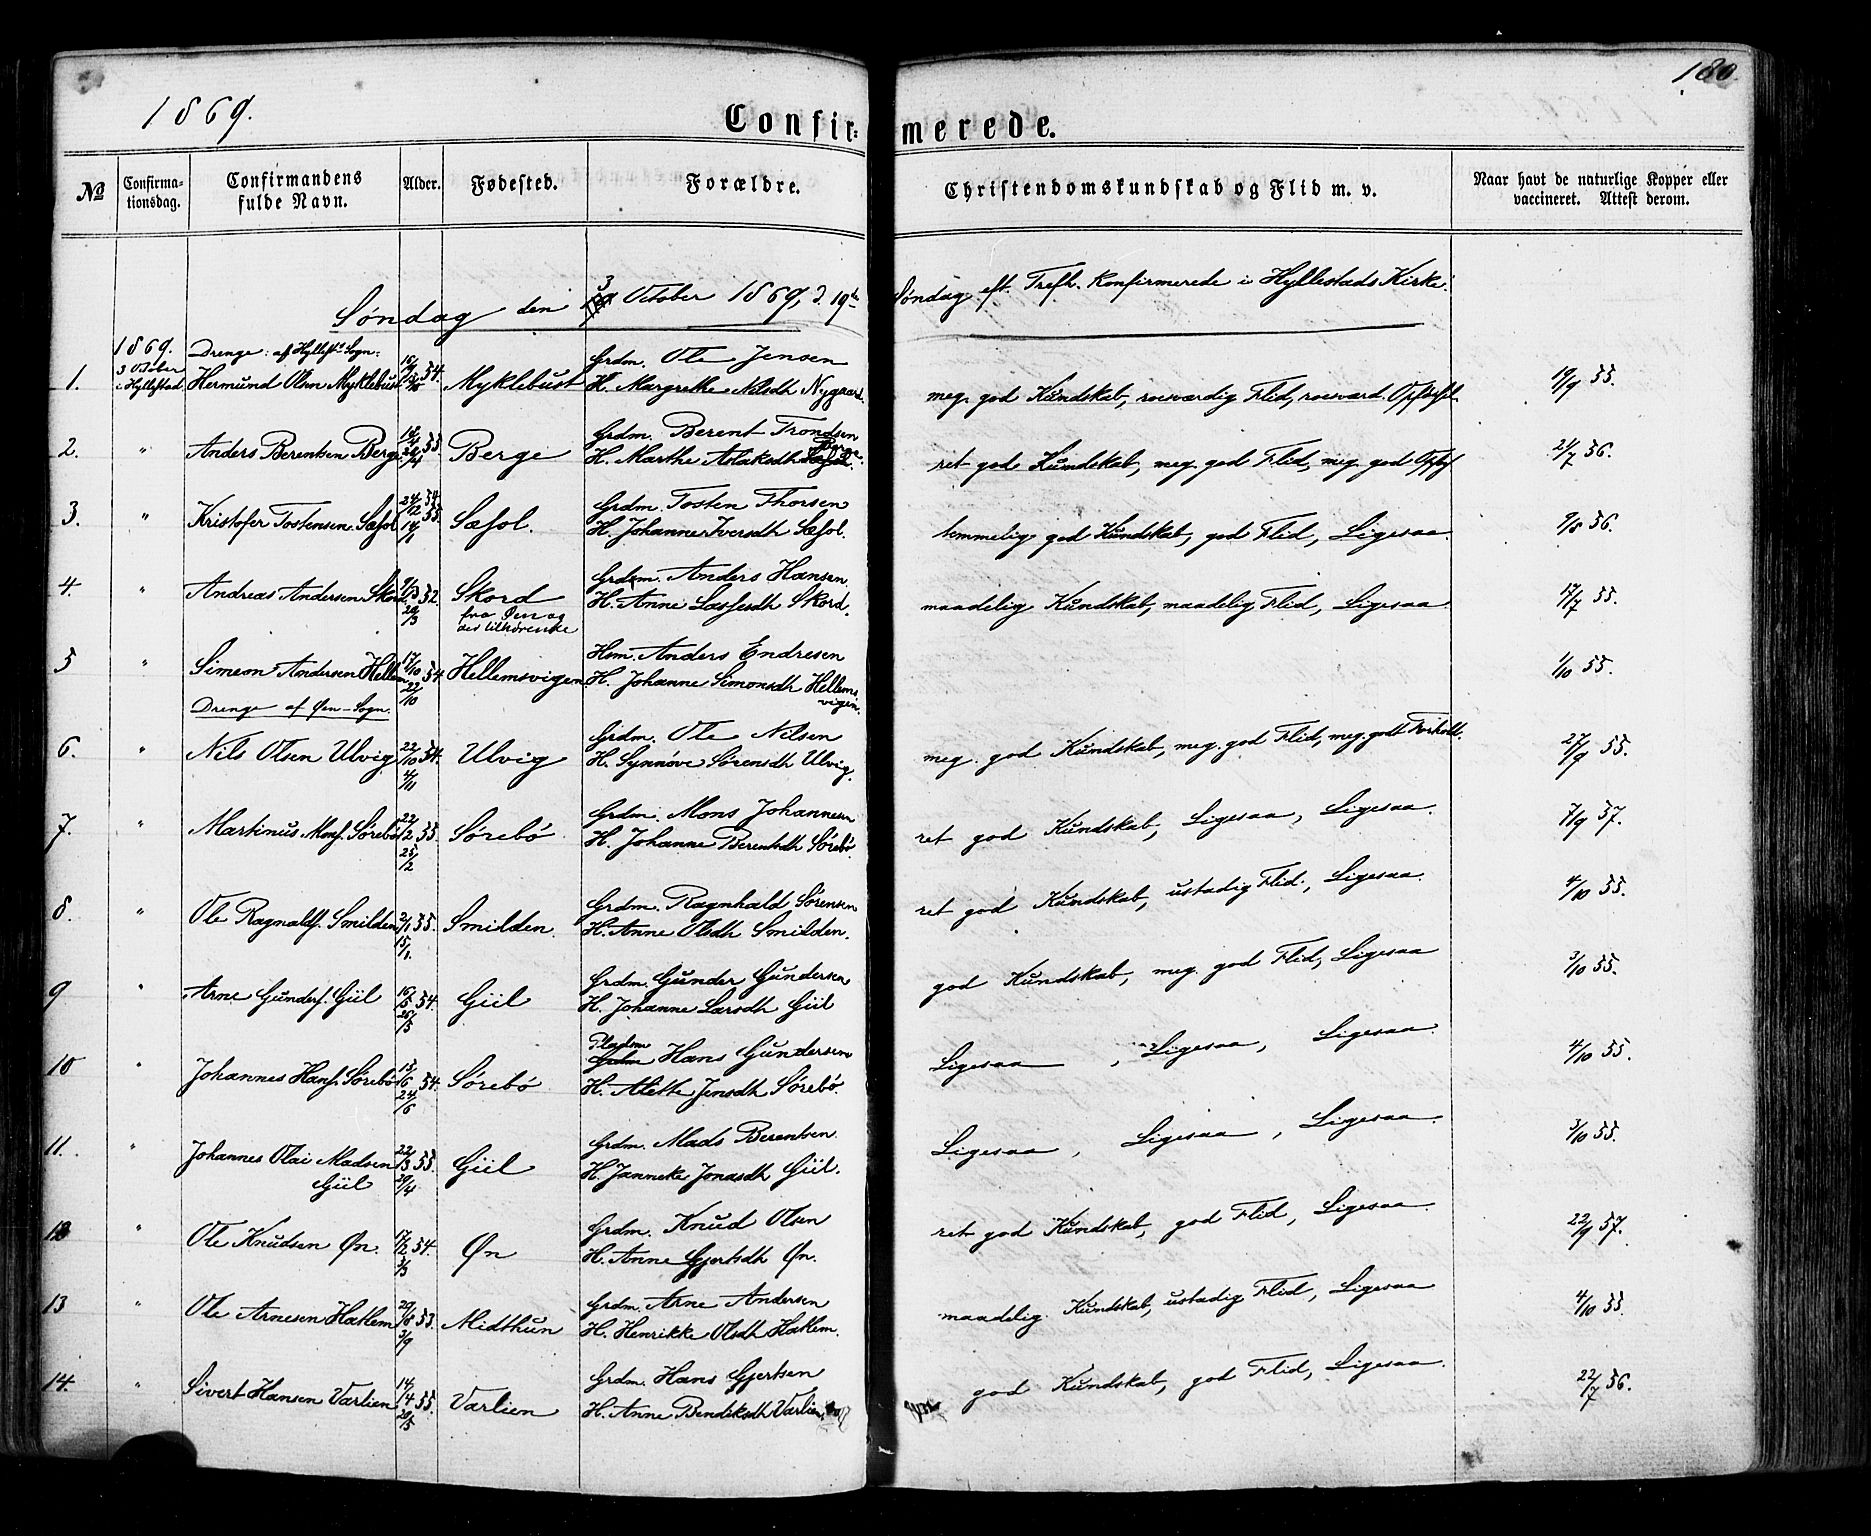 180.
1869.
Confir-merede.
No
Confirma-tionsdag.
Confirmandens fulde Navn.
Alder.
Fødested.
Forældre.
Christendomskundskab og Flid m. v.
Naar havt de naturlige Kopper eller vaccineret. Attest derom.
Søndag den 3 October 1869, 19de Søndag eft. Trefh. Konfirmerede i Hyllestads Kirke.
1869. Drenge: af Hyllest. Sogn:
3 October i Hyllestad
1. Hermund Olsen Myklebust 54. Myklebust Grdm. Ole Jensen
H. Margrethe Nilsdh Nygaard. meg. god Kundskab, roesværdig Flid, roesværd. 19/9 55.
2. " Anders Berentsen Berge 55 Berge Grdm. Berent Trondsen
H. Marthe Aslaksdh Berge. ret god Kundskab, meg. god Flid, meg. god Opf. 21/7 56.
3. " Kristofer Tostensen Sæsol 24/12 54. 14/1 55. Sæsol. Grdm. Tosten Thorsen
H. Johanne Iversdh Sæsol. temmelig god Kundskab, god Flid, Ligesaa. 9/8 56.
4. " Andreas Andersen Skord 52. 20/3 Skord Grdm. Anders Hansen.
fra Øen og der tilhørende
H. Anne Lassesdh Skord. maadelig Kundskab, maadelig Flid, Ligesaa. 17/7 55.
5 " Simeon Andersen Hellem 17/10 54 22/10 Hellemsvigen Hsm. Anders Endresen
H. Johanne Simonsdh Hellemsvigen. 1/10 55.
Drenge af Øen-Sogn.
6. " Nils Olsen Ulvig 22/10 54. 4/11 Ulvig Grdm. Ole Nilsen
H. Synnøve Sørensdh Ulvig. meg. god Kundskab, meg. god Flid, meg. godt Forhold. 27/9 55.
7. " Martinus Mons. Sørebø 22/2 55. 25/2 Sørebø Grdm. Mons Johannesen
H. Johanne Berentsdh Sørebø. ret god Kundskab, Ligesaa, Ligesaa. 7/9 57.
8. " Ole Ragnalds. Smilden 2/1 55. 15/1. Smilden. Grdm. Ragnhald Sørensen
H. Anne Olsdh Smilden. ret god Kundskab, ustadig Flid, Ligesaa. 4/10 55.
9 " Arne Gunders. Giil 16/5 54. 25/5 Giil Grdm. Gunder Gundersen
H. Johanne Larsdh Giil god Kundskab, meg. god Flid, Ligesaa 3/10 55.
10 " Johannes Hans. Sørebø 15/6 54. 24/6 Sørebø Pladsm Hans Gundersen
H. Alette Jensdh Sørebø. Ligesaa, Ligesaa, Ligesaa. 4/10 55.
11. " Johannes Olai Madsen Giil 22/3 55. 29/4 Giil Grdm. Mads Berentsen.
H. Janneke Jonasdh Giil. Ligesaa, Ligesaa, Ligesaa. 3/10 55.
12 " Ole Knudsen Øn. 17/2 54. 3/3 Øn Grdm. Knud Olsen
H. Anne Gjertsdh Øn. ret god Kundskab, god Flid, Ligesaa. 22/9 57.
13 " Ole Arnesen Hatlem 29/8 53. 3/9 Midthun Grdm. Arne Andersen
H. Henrikke Olsdh Hatlem. maadelig Kundskab, ustadig Flid, Ligesaa 4/10 55.
14. " Sivert Hansen Varlien 14/4 55. 20/5 Varlien Grdm. Hans Gjertsen
H. Anne Bendiksdh Varlien god Kundskab, god Flid, Ligesaa. 22/7 56.